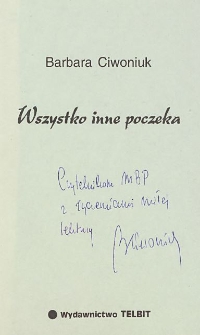 Barbara Ciwoniuk
Wszystko inne poczeka
Czytelnikom MBP
z życzeniami miłej
lektury
BCiwoniuk
Wydawnictwo TELBIT